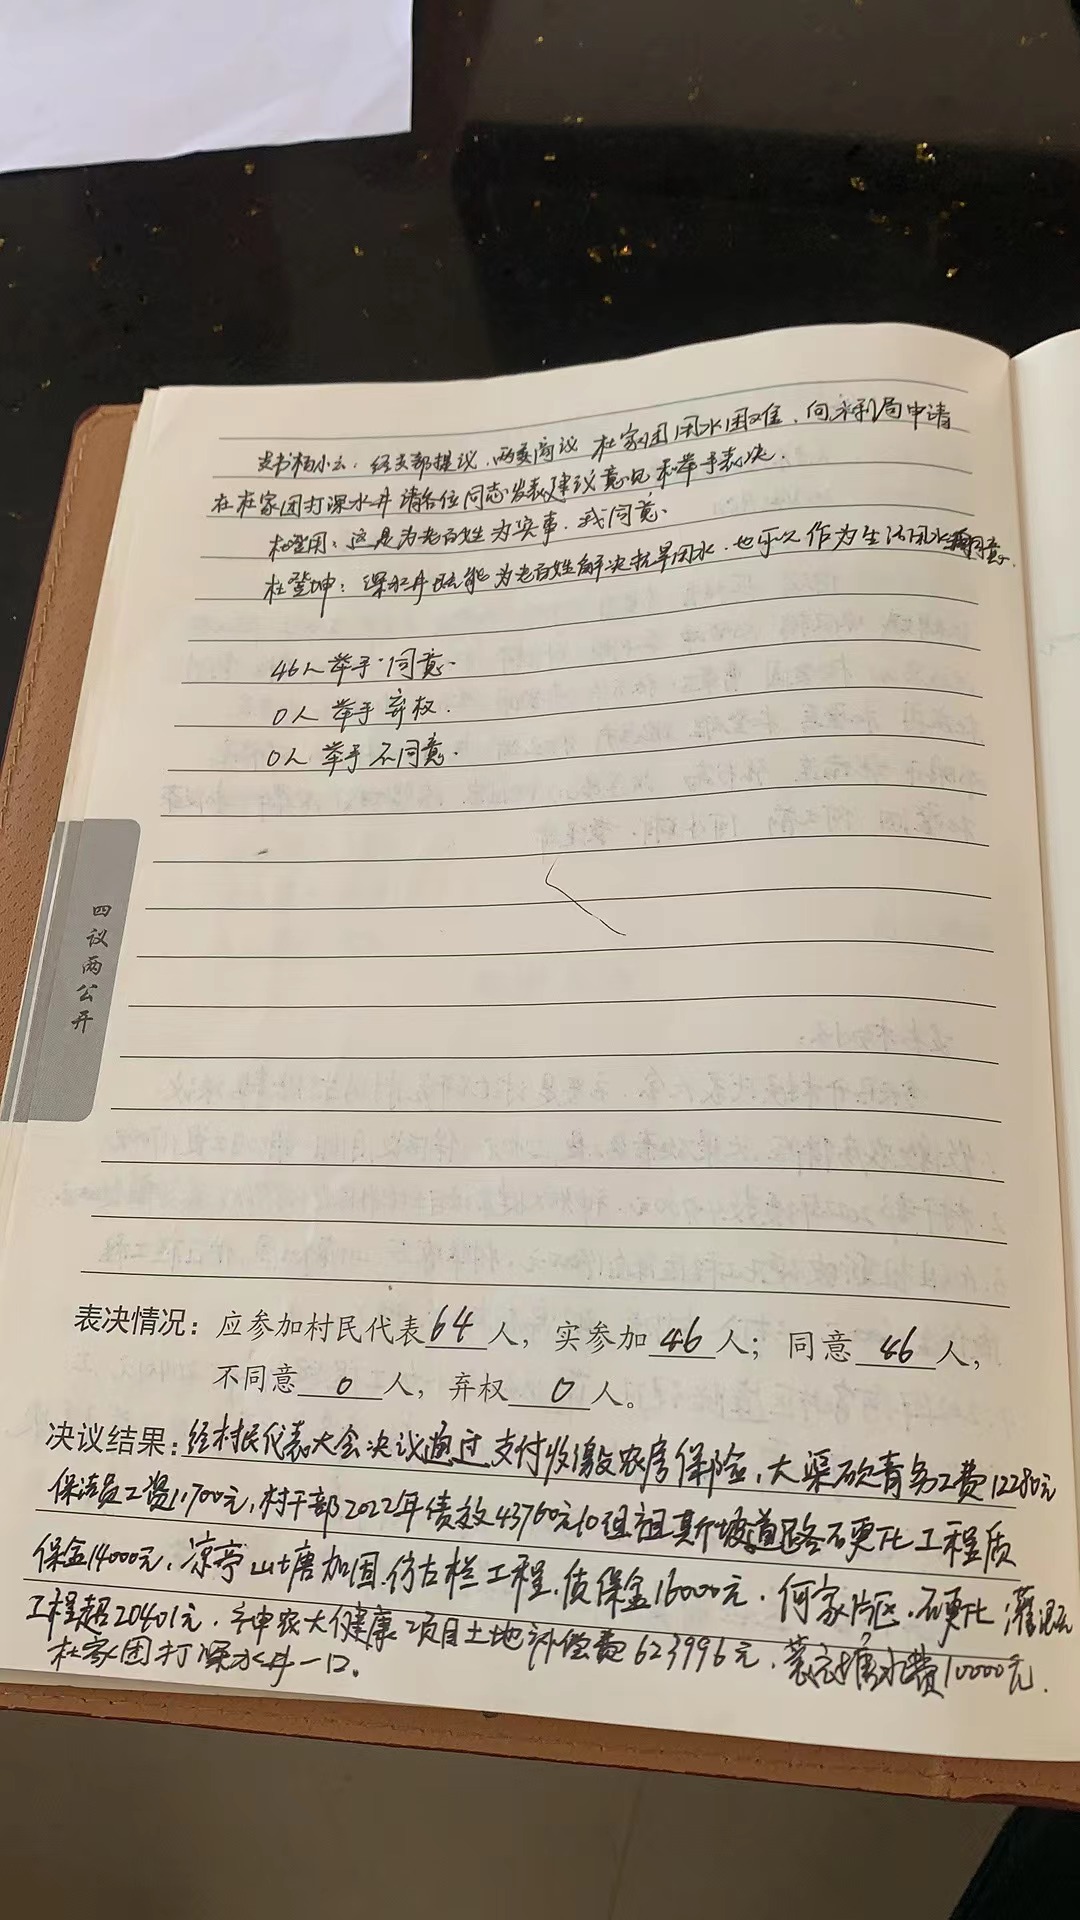 支书杨小云：经支部提议、两委商议 杜家团用水困难、向水利局申请
在杜家团打深水井 请各位同志发表建议意见和举手表决.
这是为老百姓为实事. 我同意.
杜登坤：深水井既能为老百姓解决抗旱用水. 也可以作为生活用水 同意.
46人举手同意.
0人举手弃权.
0人举手不同意.
四议两公开
表决情况：应参加村民代表64人，实参加46人；同意46人，
不同意0人，弃权0人。
决议结果：经村民代表大会决议通过、支付收缴农房保险、大渠砍青务工费12280元
保洁员工资11700元,村干部2022年绩效43760元10组祖其斯坡道路硬化工程质
保金14000元、凉亭山塘加固.仿古栏工程.质保金16000元. 何家片区.硬化
工程超20401元. 神农大健康项目土地补偿费623996元、塘水费10000元.
杜家团打深水井一口。